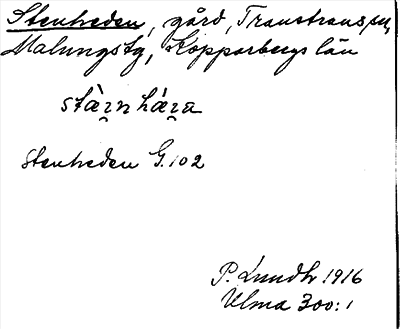 Stenheden, gård, Transtrands sn,
Malungs tg, Kopparbergs län
stæ̀ɳ hé̱ɽa
Stenheden G. 102
P. Lundh 1916
Ulma 300:1